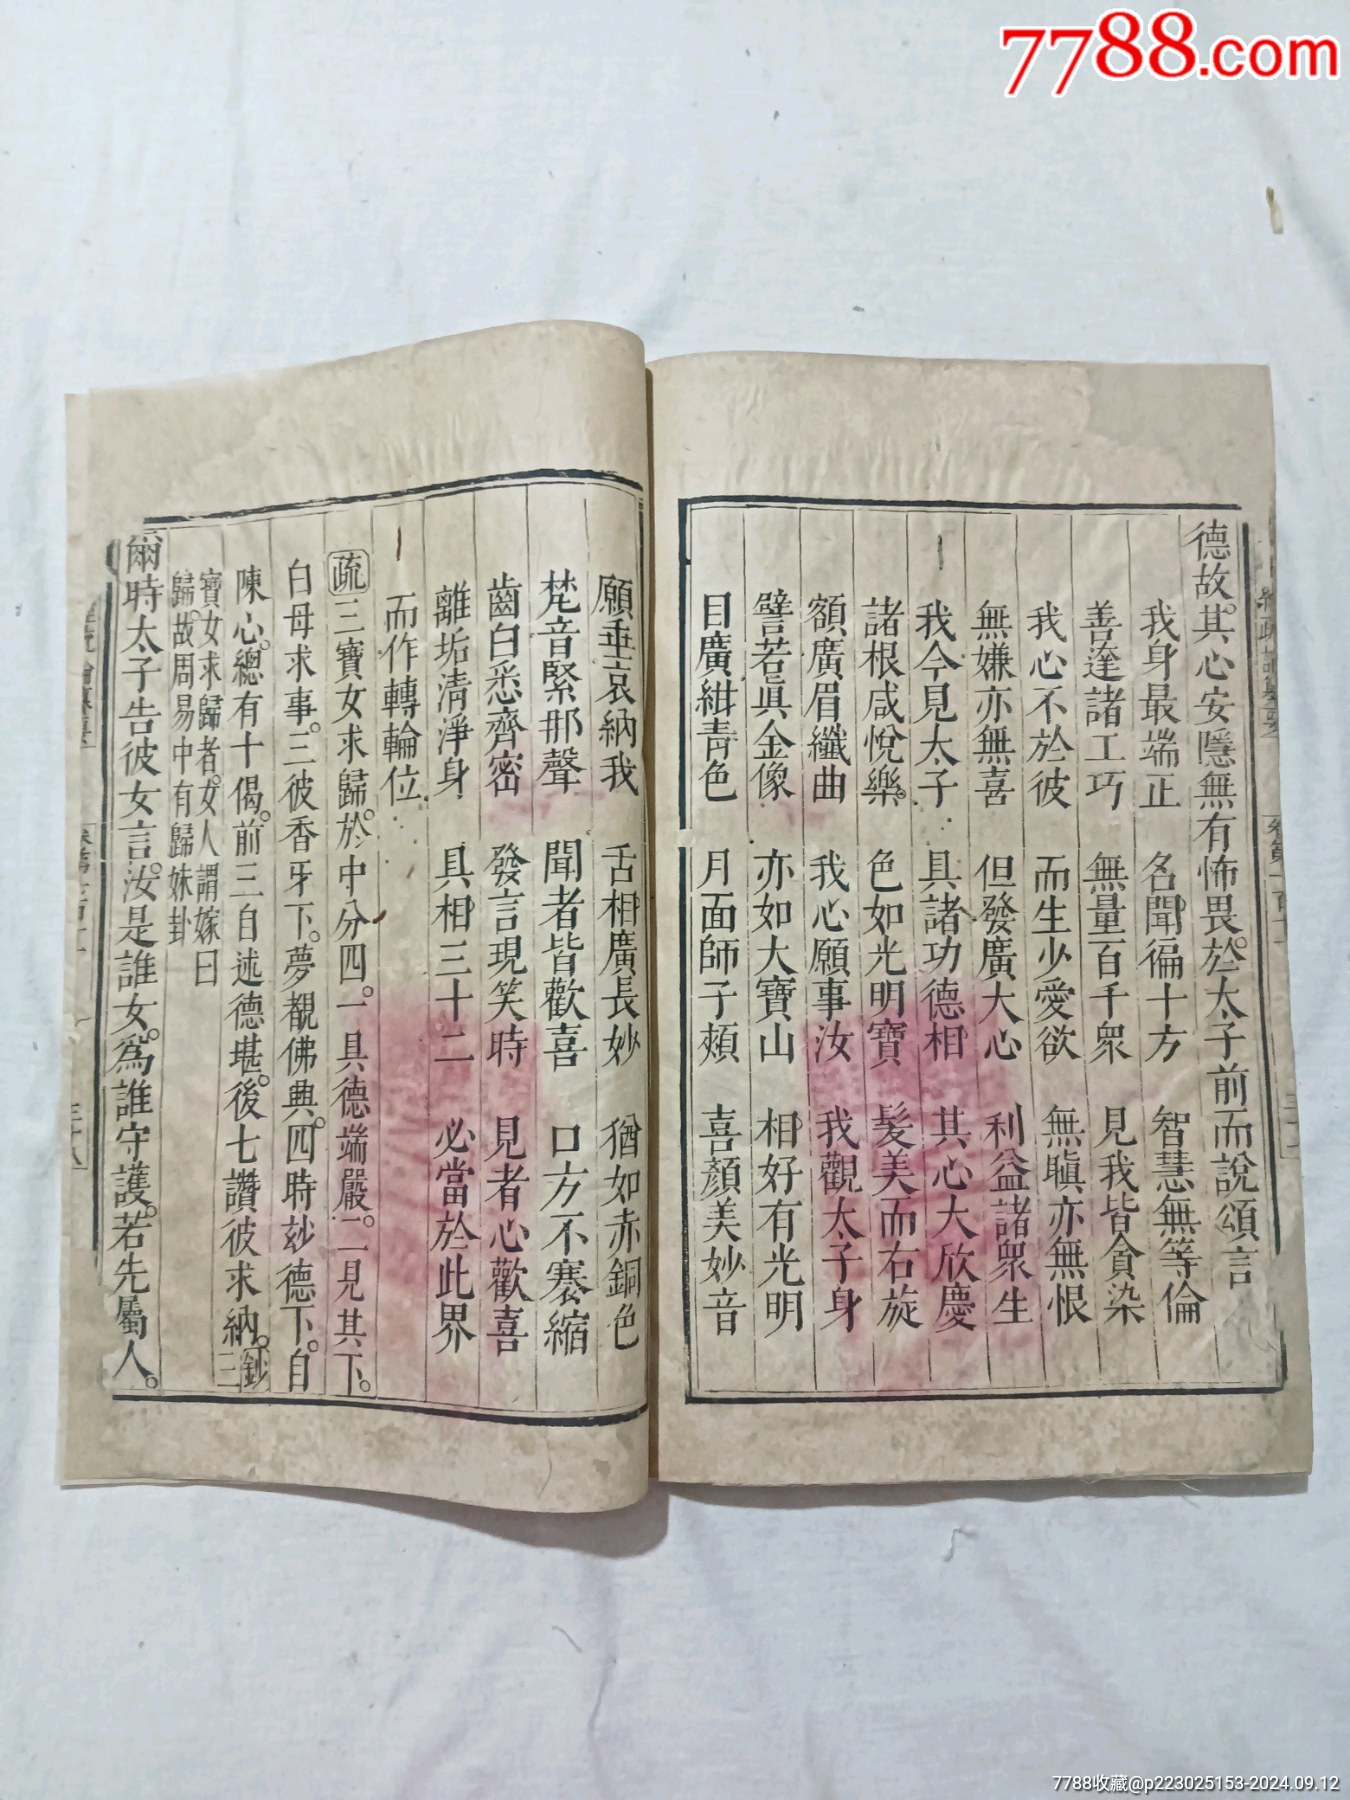 7788.com
德故。其心安隱無有怖畏。於太子前而說頌言
我身最端正 名聞徧十方 智慧無等倫
善達諸工巧 無量百千衆 見我皆貪染
我心不於彼 而生少愛欲 無瞋亦無恨
無嫌亦無喜 但發廣大心 利益諸衆生
我今見太子 具諸功德相 其心大欣慶
諸根咸悅樂。 色如光明寶 髮美而右旋
額廣眉纖曲 我心願事汝 我觀太子身
譬若眞金像 亦如大寶山 相好有光明
目廣紺青色 月面師子頰 喜顏美妙音
願垂哀納我 舌相廣長妙 猶如赤銅色
梵音緊那聲 聞者皆歡喜 口方不褰縮
齒白悉齊密 發言現笑時 見者心歡喜
離垢清淨身 具相三十二 必當於此界
而作轉輪位
疏三寶女求歸。於中分四。一具德端嚴。二見其下。
白母求事。三彼香牙下。夢覩佛典。四時玅德下。自
陳心。總有十偈。前三自述德堪。後七讚彼求納。鈔三
寶女求歸者。女人謂嫁曰
歸。故周易中有歸妹卦
爾時太子告彼女言。汝是誰女。爲誰守護。若先屬人。
7788收藏@p223025153-2024.09.12